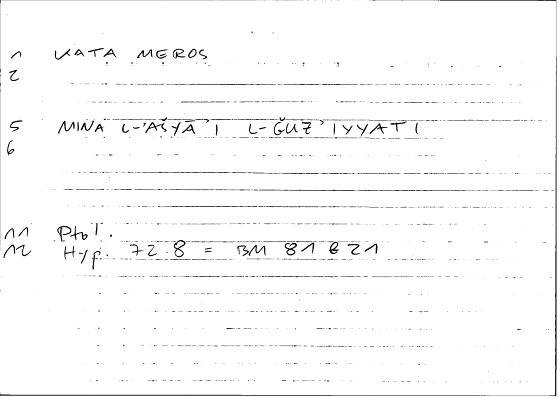 1 KATA MEROS
2
5 MINA L-'AŠYĀ'I L-ǦUZ'IYYATI
6
11 Ptol.
12 Hyp. 72 8 = BM 81 b 21